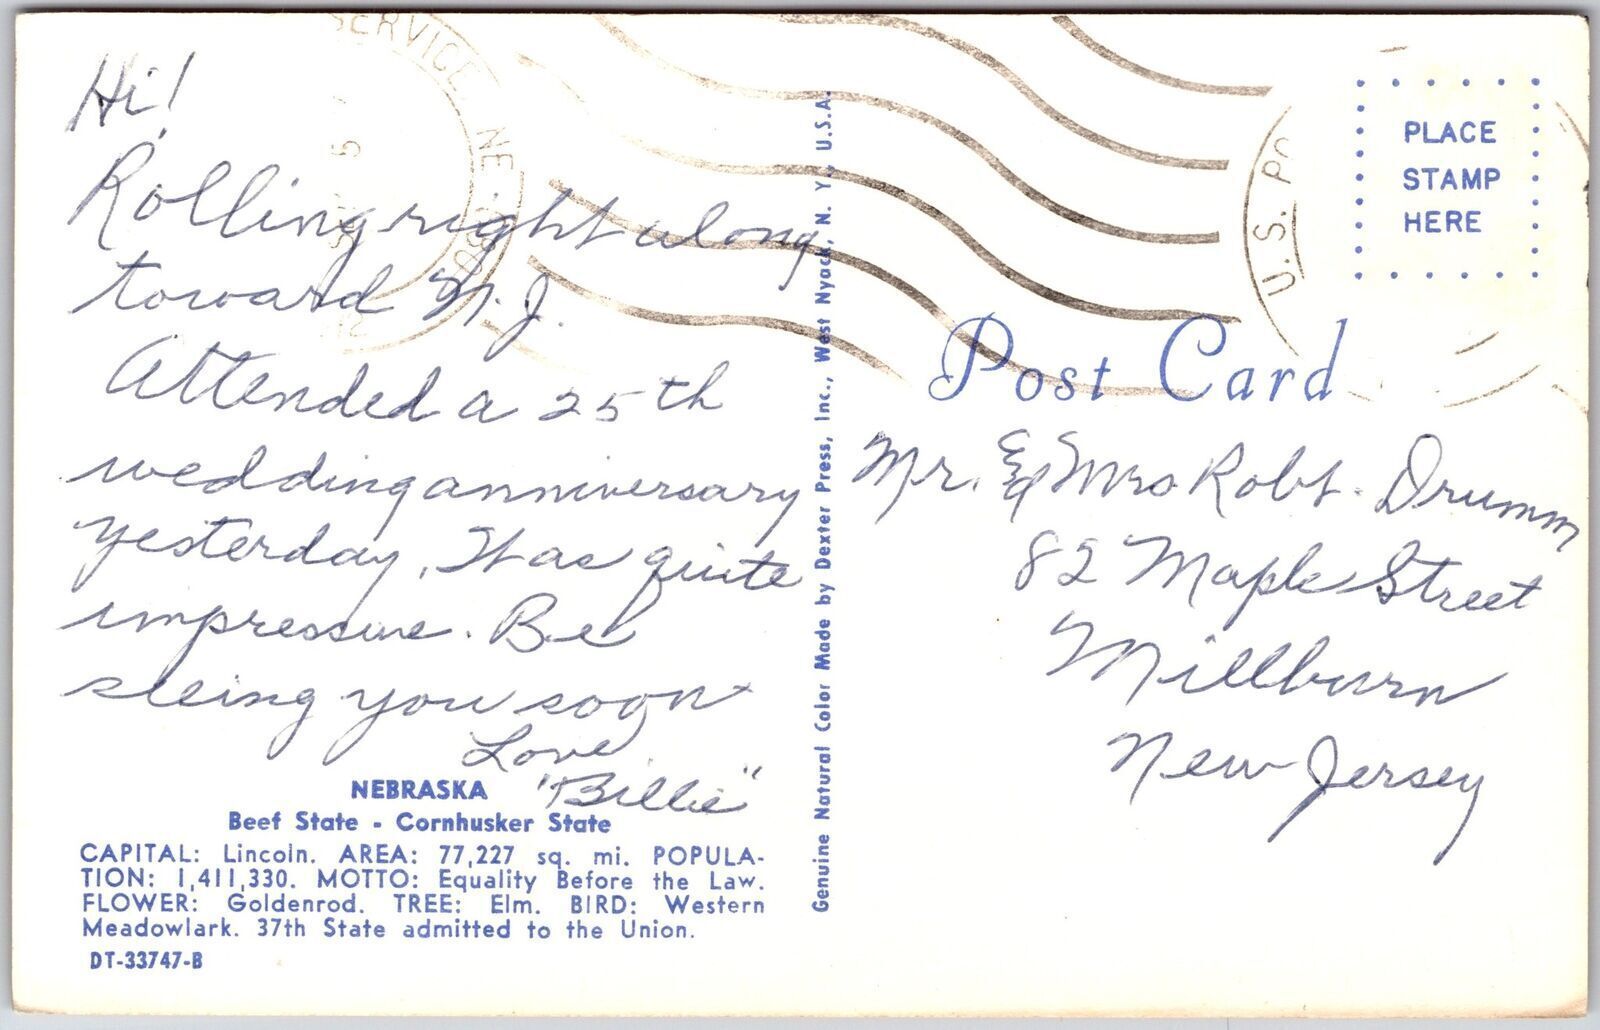 Hi!
Rolling right along
toward N.J.
Attended a 25th
wedding anniversary
yesterday. It was quite
impressive. Be
seeing you soon
Love
"Billie"
NEBRASKA
Beef State - Cornhusker State
CAPITAL: Lincoln. AREA: 77,227 sq. mi. POPULA-
TION: 1,411,330. MOTTO: Equality Before the Law.
FLOWER: Goldenrod. TREE: Elm. BIRD: Western
Meadowlark. 37th State admitted to the Union.
DT-33747-B
Genuine Natural Color Made by Dexter Press, Inc., West Nyack, N. Y., U.S.A.
SERVICE NE
U.S. PO
PLACE
STAMP
HERE
Post Card
Mr. & Mrs Robt. Drumm
82 Maple Street
Millburn
New Jersey